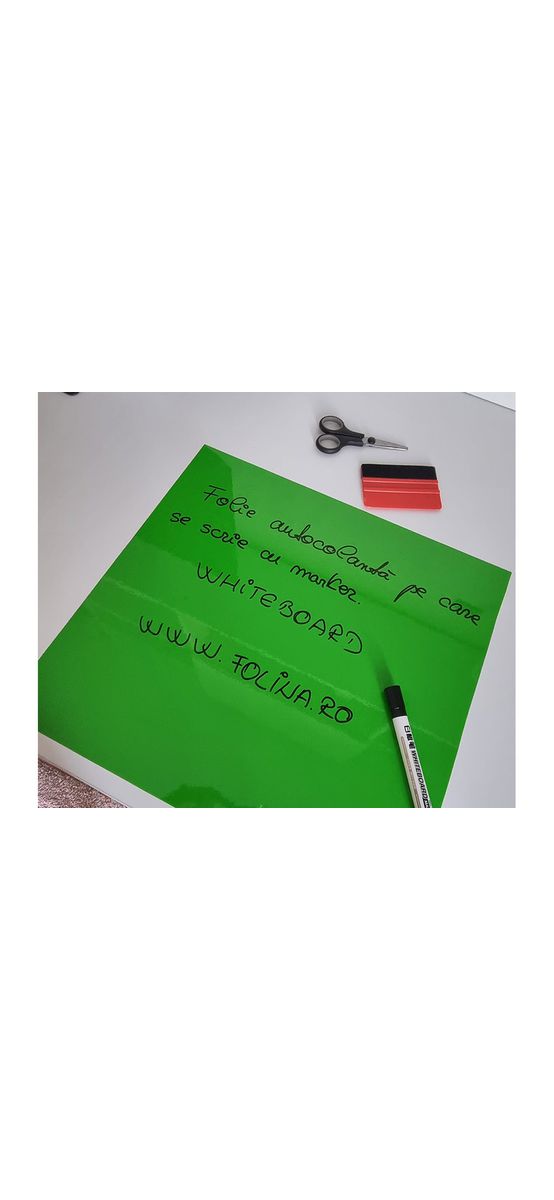 Folie autocolantă pe care
se scrie cu marker.
WHITEBOARD
WWW.FOLINA.RO
白板笔 WHITEBOARD